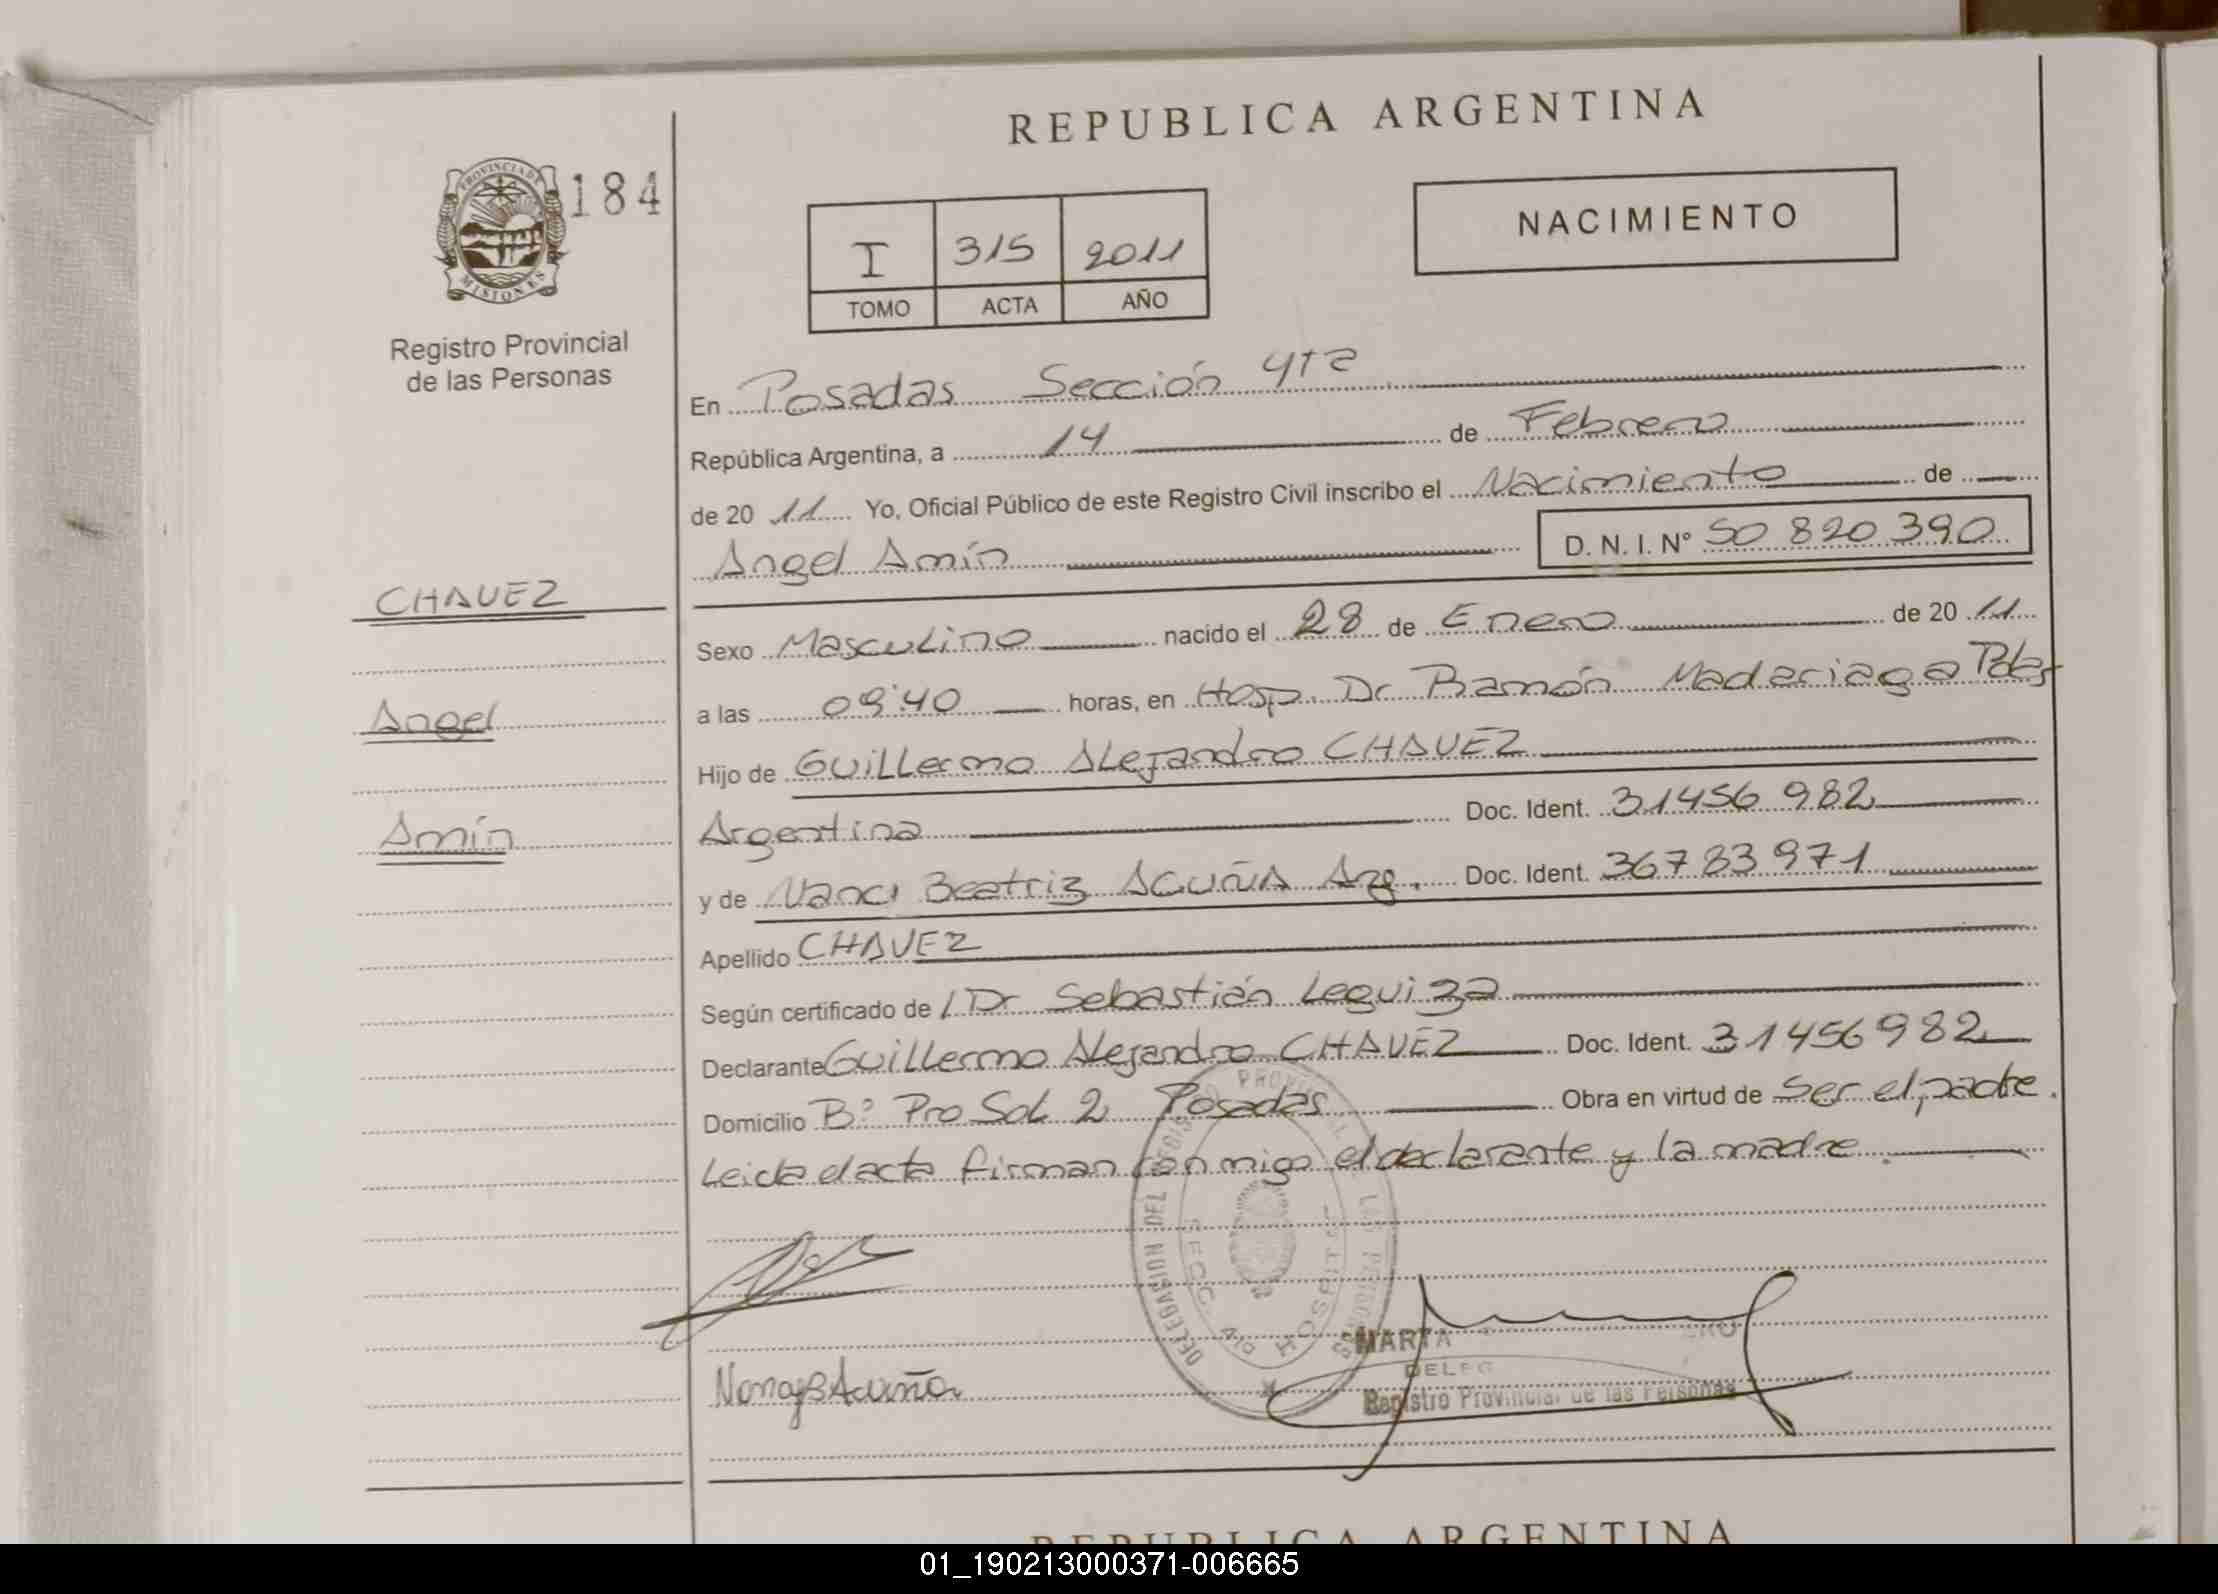 REPUBLICA ARGENTINA
PROVINCIA DE MISIONES
184
NACIMIENTO
I 315 2011
TOMO ACTA AÑO
Registro Provincial
de las Personas
En Posadas Sección 4ta
República Argentina, a 14 de Febrero
de 20 11 Yo, Oficial Público de este Registro Civil inscribo el Nacimiento de
Angel Amín D. N. I. N° 50 820 390
CHAVEZ
Angel
Amín
Sexo Masculino nacido el 28 de Enero de 20 11
a las 09:40 horas, en Hosp. Dr Ramón Madariaga Pdas
Hijo de Guillermo Alejandro CHAVEZ
Argentina Doc. Ident. 31456 982
y de Nanci Beatriz ACUÑA Arg. Doc. Ident. 36783971
Apellido CHAVEZ
Según certificado de Dr Sebastián Leguiza
Declarante Guillermo Alejandro CHAVEZ Doc. Ident. 31456982
Domicilio B° Pro Sol 2 Posadas Obra en virtud de ser el padre.
Leida el acta firman con migo el declarante y la madre.
DELEGACION DEL REGISTRO PROVINCIAL DE LAS PERSONAS
SECC. 4ta HOSPITAL
MARTA
DELEG
Registro Provincial de las Personas
Acuña
REPUBLICA ARGENTINA
01_190213000371-006665